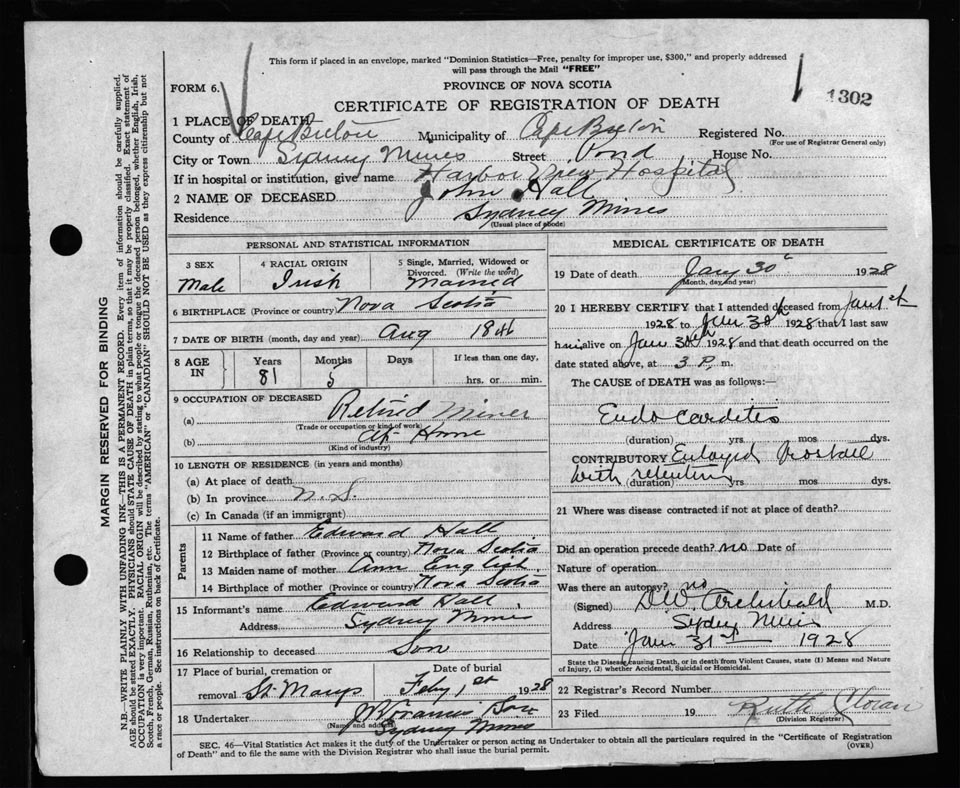 This form if placed in an envelope, marked "Dominion Statistics—Free, penalty for improper use, $300," and properly addressed
will pass through the Mail "FREE"
FORM 6.
PROVINCE OF NOVA SCOTIA
1302
CERTIFICATE OF REGISTRATION OF DEATH
1 PLACE OF DEATH—
County of Cape Breton Municipality of Cape Breton Registered No.
(For use of Registrar General only)
City or Town Sydney Mines Street Pond House No.
If in hospital or institution, give name Harbor View Hospital
2 NAME OF DECEASED John Hall
Residence Sydney Mines
(Usual place of abode)
PERSONAL AND STATISTICAL INFORMATION
3 SEX
Male
4 RACIAL ORIGIN
Irish
5 Single, Married, Widowed or
Divorced. (Write the word)
Married
6 BIRTHPLACE (Province or country) Nova Scotia
7 DATE OF BIRTH (month, day and year) Aug 1846
8 AGE IN
Years
81
Months
5
Days
If less than one day,
hrs. or min.
9 OCCUPATION OF DECEASED
(a) Retired Miner
(Trade or occupation or kind of work)
(b) At Home
(Kind of industry)
10 LENGTH OF RESIDENCE (in years and months)
(a) At place of death
(b) In province N. S.
(c) In Canada (if an immigrant)
Parents
11 Name of father Edward Hall
12 Birthplace of father (Province or country) Nova Scotia
13 Maiden name of mother Ann English
14 Birthplace of mother (Province or country) Nova Scotia
15 Informant's name Edward Hall
Address Sydney Mines
16 Relationship to deceased Son
17 Place of burial, cremation or
removal St. Marys
Date of burial
Feby 1st 1928
18 Undertaker J Francis Son
(Name and address)
Sydney Mines
MEDICAL CERTIFICATE OF DEATH
19 Date of death Jany 30 1928
(Month, day and year)
20 I HEREBY CERTIFY that I attended deceased from Jan 1st
1928 to Jan 30th 1928 that I last saw
him alive on Jan 30th 1928 and that death occurred on the
date stated above, at 3 P. m.
The CAUSE of DEATH was as follows:—
Endocarditis
(duration) yrs. mos dys.
CONTRIBUTORY Enlarged Prostate
with retention
(duration) yrs mos dys.
21 Where was disease contracted if not at place of death?
Did an operation precede death? no Date of
Nature of operation
Was there an autopsy? no
(Signed) D.W. Archibald M.D.
Address Sydney Mines
Date Jan 31st 1928
State the Disease causing Death, or in death from Violent Causes, state (1) Means and Nature
of Injury, (2) whether Accidental, Suicidal or Homicidal.
22 Registrar's Record Number
23 Filed 19 Ruth
(Division Registrar)
SEC. 46—Vital Statistics Act makes it the duty of the Undertaker or person acting as Undertaker to obtain all the particulars required in the "Certificate of Registration
of Death" and to file the same with the Division Registrar who shall issue the burial permit.
(OVER)
MARGIN RESERVED FOR BINDING
N.B.—WRITE PLAINLY WITH UNFADING INK—THIS IS A PERMANENT RECORD. Every item of information should be carefully supplied.
AGE should be stated EXACTLY. PHYSICIANS should STATE CAUSE OF DEATH in plain terms, so that it may be properly classified. Exact statement of
OCCUPATION is very important. RACIAL ORIGIN will be described by stating to what people or tongue the deceased person belonged, whether English, Irish,
Scotch, French, German, Russian, Ruthenian, etc. The terms "AMERICAN" or "CANADIAN" SHOULD NOT BE USED as they express citizenship but not
a race or people. See instructions on back of Certificate.